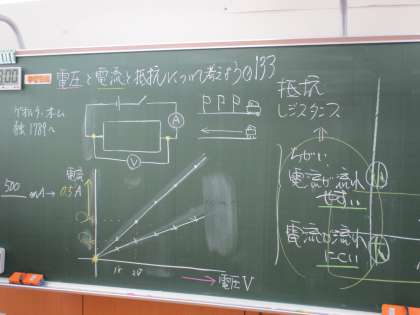 電圧と電流と抵抗について考えよう①133
ゲオルク・オーム
独1789~
A
V
抵抗
レジスタンス
ちがい
電流が流れ
やすい
電流が流れ
にくい
電流
500 mA→0.5A
1V 2V
→電圧V